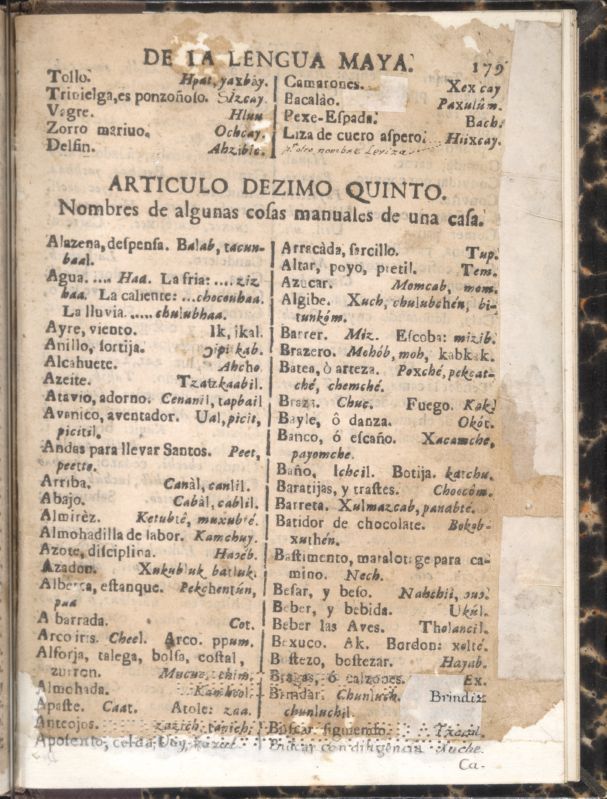 DE LA LENGUA MAYA. 179
Tollo. Hpat, yaxbay.
Trinielga, es ponzoñoso. Sizcay.
Vegre. Hluu
Zorro mariuo. Ochcay.
Delfin. Ahzibic.
Camarones. Xex cay
Bacalào. Paxulûm.
Pexe-Espada. Bach.
Liza de cuero aspero. Hiixcay.
ARTICULO DEZIMO QUINTO.
Nombres de algunas cosas manuales de una casa.
Alazena, despensa. Balab, tacun-
baal.
Agua. .... Haa. La fria: .... ziz
haa. La caliente: ...chocouhaa.
La lluvia. ..... chulubhaa.
Ayre, viento. Ik, ikal.
Anillo, sortija. ɔipi kab.
Alcahuete. Ahcho
Azeite. Tzatzkaabil.
Atavio, adorno. Cenanil, tapbail
Avanico, aventador. Ual, picit,
picitil.
Andas para llevar Santos. Peet,
peette.
Arriba. Canàl, canlil.
Abajo. Cabàl, cablil.
Almirèz. Ketubtê, muxubté.
Almohadilla de labor. Kamchuy.
Azote, disciplina. Hazéb.
Azadon. Xukubluk batluk.
Alberca, estanque. Pekchentùn,
paa
A barrada. Cot.
Arco iris. Cheel. Arco. ppum.
Alforja, talega, bolsa, costal,
zurron. Mucuc, chim.
Almohada. Kanhool.
Apaste. Caat. Atole: zaa.
Anteojos. zazich, tanich.
Aposento, celda,
Arracàda, sarcillo. Tup.
Altar, poyo, pretil. Tem.
Azucar. Momcab, mom.
Algibe. Xuch, chulubchén, bi-
tunkóm.
Barrer. Miz. Escoba: mizib.
Brazero. Mohób, moh, kabkak.
Batea, ò arteza. Poxché, pekcat-
ché, chemché.
Braza. Chuc. Fuego. Kak.
Bayle, ô danza. Okót.
Banco, ô escaño. Xacamche,
payomche.
Baño, Ichcil. Botija. katchu.
Baratijas, y trastes. Choocóm.
Barreta. Xulmazcab, panabtè.
Batidor de chocolate. Bokob-
xuthén.
Bastimento, matalotage para ca-
mino. Nech.
Besar, y beso. Nahchii,
Beber, y bebida. Ukúl.
Beber las Aves. Tholancil.
Bexuco. Ak. Bordon: xolté.
Bostezo, bostezar. Hayab.
Bragas, ó calzones. Ex.
Brindar. Chunluch. Brindix
chunluchil.
Buscar siguiendo.
Buscar con diligencia.
Ca-